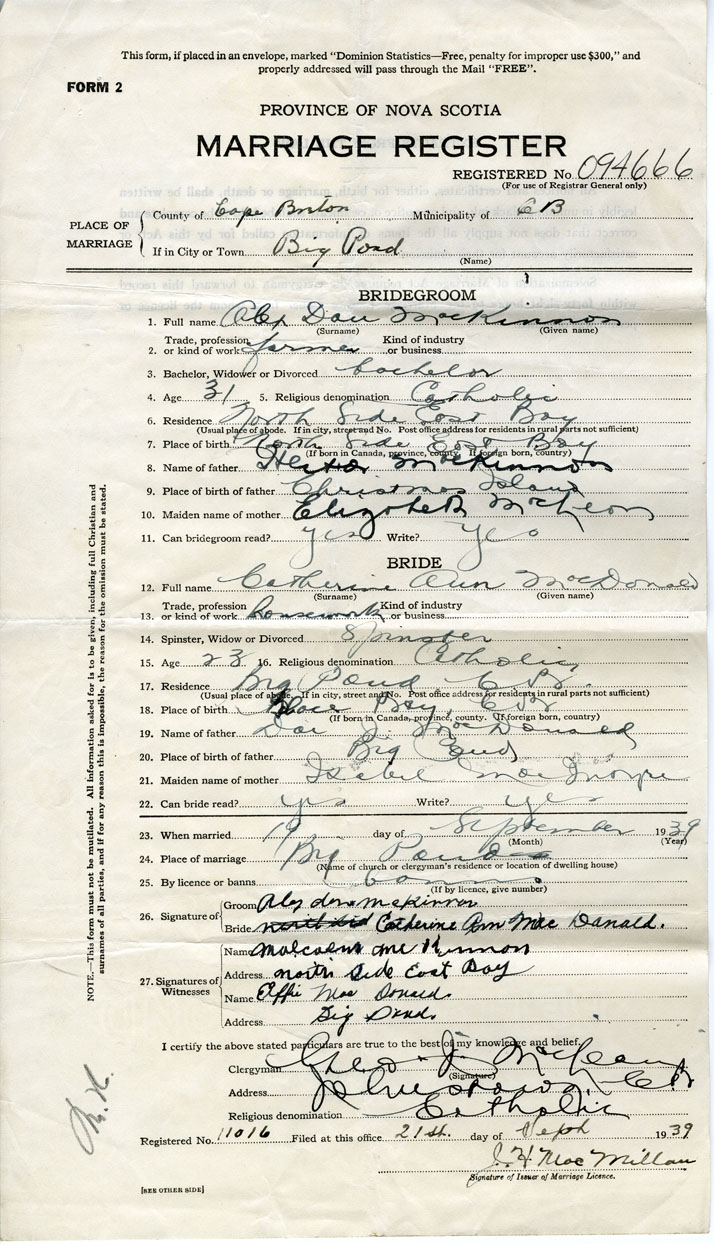 This form, if placed in an envelope, marked "Dominion Statistics—Free, penalty for improper use $300," and
properly addressed will pass through the Mail "FREE".
FORM 2
PROVINCE OF NOVA SCOTIA
MARRIAGE REGISTER
REGISTERED No. 094666
(For use of Registrar General only)
PLACE OF MARRIAGE
County of Cape Breton Municipality of CB
If in City or Town Big Pond
(Name)
BRIDEGROOM
1. Full name Alex Dan MacKinnon
(Surname) (Given name)
Trade, profession Kind of industry
2. or kind of work farmer or business
3. Bachelor, Widower or Divorced bachelor
4. Age 31 5. Religious denomination Catholic
6. Residence North Side East Bay
(Usual place of abode. If in city, street and No. Post office address for residents in rural parts not sufficient)
7. Place of birth North Side East Bay
(If born in Canada, province, county. If foreign born, country)
8. Name of father Hector MacKinnon
9. Place of birth of father Christmas Island
10. Maiden name of mother Elizabeth McLean
11. Can bridegroom read? yes Write? yes
BRIDE
12. Full name Catherine Ann MacDonald
(Surname) (Given name)
Trade, profession Kind of industry
13. or kind of work housework or business
14. Spinster, Widow or Divorced Spinster
15. Age 23 16. Religious denomination Catholic
17. Residence Big Pond C.B.
(Usual place of abode. If in city, street and No. Post office address for residents in rural parts not sufficient)
18. Place of birth Glace Bay, CB
(If born in Canada, province, county. If foreign born, country)
19. Name of father Dan J. MacDonald
20. Place of father Big Pond
21. Maiden name of mother Isabel MacIntyre
22. Can bride read? yes Write? yes
23. When married 19 day of September 1939
(Month) (Year)
24. Place of marriage Big Pond
(Name of church or clergyman's residence or location of dwelling house)
25. By licence or banns banns
(If by licence, give number)
26. Signature of
Groom Alex dan mcKinnon
Bride Catherine Ann Mac Donald.
27. Signatures of Witnesses
Name malcolm mc Kinnon
Address north Side East Bay
Name Effie Mac Donald
Address Big Pond
I certify the above stated particulars are true to the best of my knowledge and belief.
Clergyman J. McLean
(Signature)
Address CB
Religious denomination Catholic
Registered No. 11016 Filed at this office 21st. day of Sept 1939
J. H. MacMillan
Signature of Issuer of Marriage Licence.
[SEE OTHER SIDE]
NOTE.—This form must not be mutilated. All information asked for is to be given, including full Christian and
surnames of all parties, and if for any reason this is impossible, the reason for the omission must be stated.